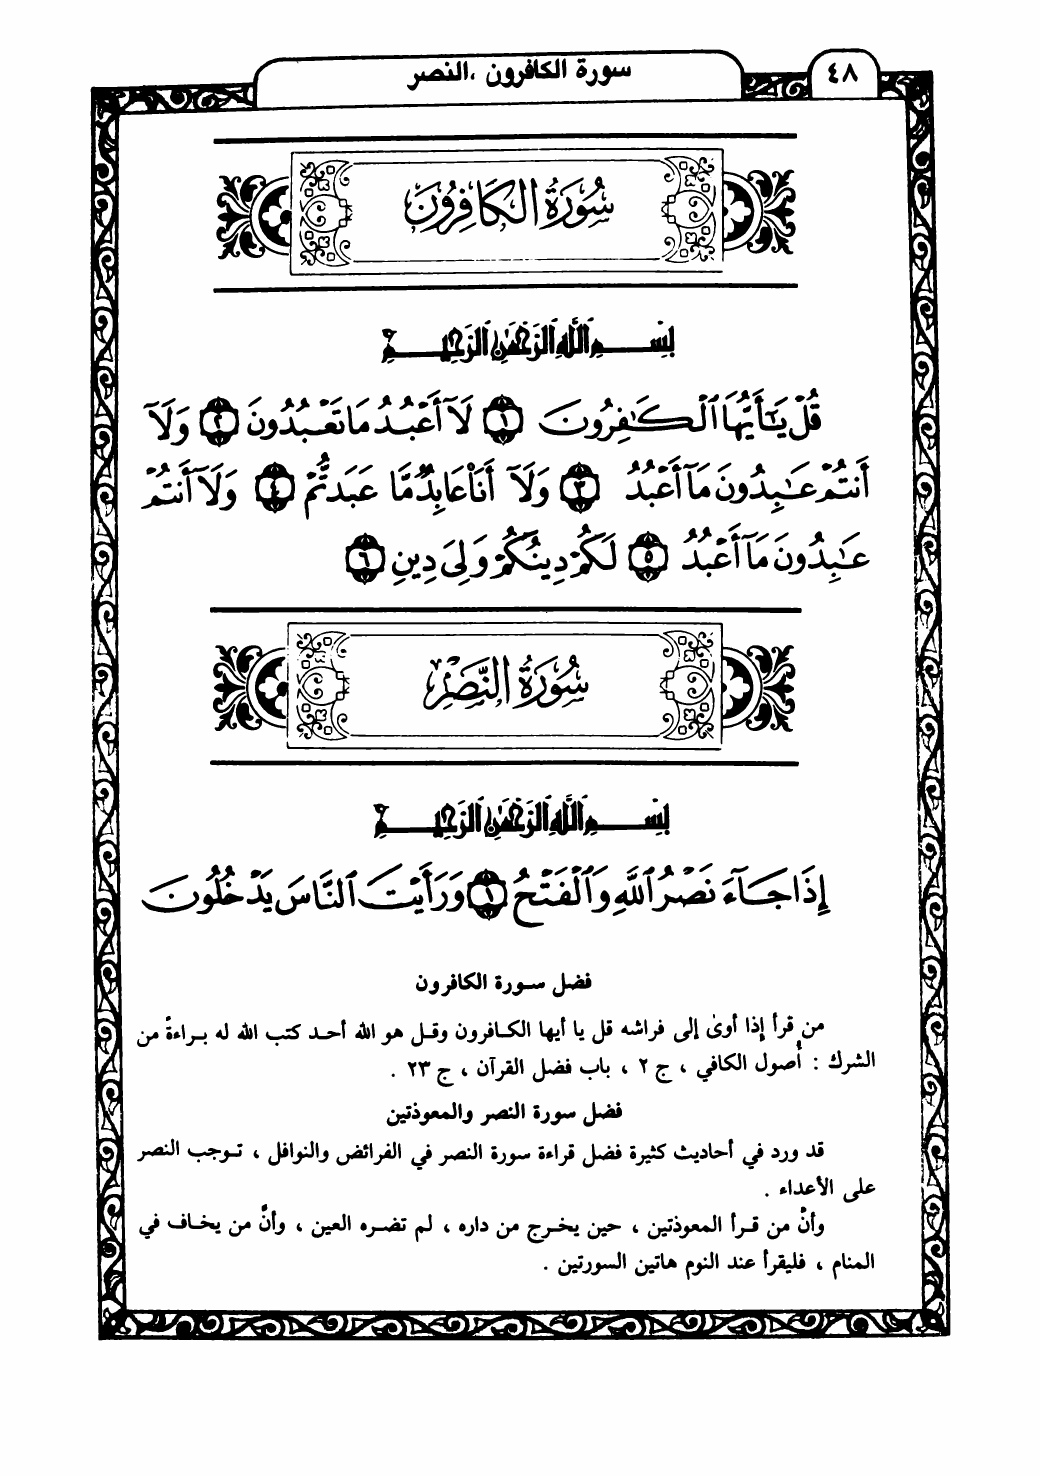 ٤٨
سورة الكافرون ،النصر
سُورَةُ الكَافِرُونَ
بِسْمِ ٱللَّهِ ٱلرَّحْمَٰنِ ٱلرَّحِيمِ
قُلْ يَٰٓأَيُّهَا ٱلْكَٰفِرُونَ ١ لَآ أَعْبُدُ مَا تَعْبُدُونَ ٢ وَلَآ
أَنتُمْ عَٰبِدُونَ مَآ أَعْبُدُ ٣ وَلَآ أَنَا۠ عَابِدٌ مَّا عَبَدتُّمْ ٤ وَلَآ أَنتُمْ
عَٰبِدُونَ مَآ أَعْبُدُ ٥ لَكُمْ دِينُكُمْ وَلِىَ دِينِ ٦
سُورَةُ النَّصْرِ
بِسْمِ ٱللَّهِ ٱلرَّحْمَٰنِ ٱلرَّحِيمِ
إِذَا جَآءَ نَصْرُ ٱللَّهِ وَٱلْفَتْحُ ١ وَرَأَيْتَ ٱلنَّاسَ يَدْخُلُونَ
فضل سورة الكافرون
من قرأ إذا أوىٰ إلى فراشه قل يا أيها الكافرون وقل هو الله أحد كتب الله له براءةً من
الشرك : أُصول الكافي ، ج ٢ ، باب فضل القرآن ، ح ٢٣ .
فضل سورة النصر والمعوذتين
قد ورد في أحاديث كثيرة فضل قراءة سورة النصر في الفرائض والنوافل ، توجب النصر
على الأعداء .
وأنّ من قرأ المعوذتين ، حين يخرج من داره ، لم تضره العين ، وأنّ من يخاف في
المنام ، فليقرأ عند النوم هاتين السورتين .